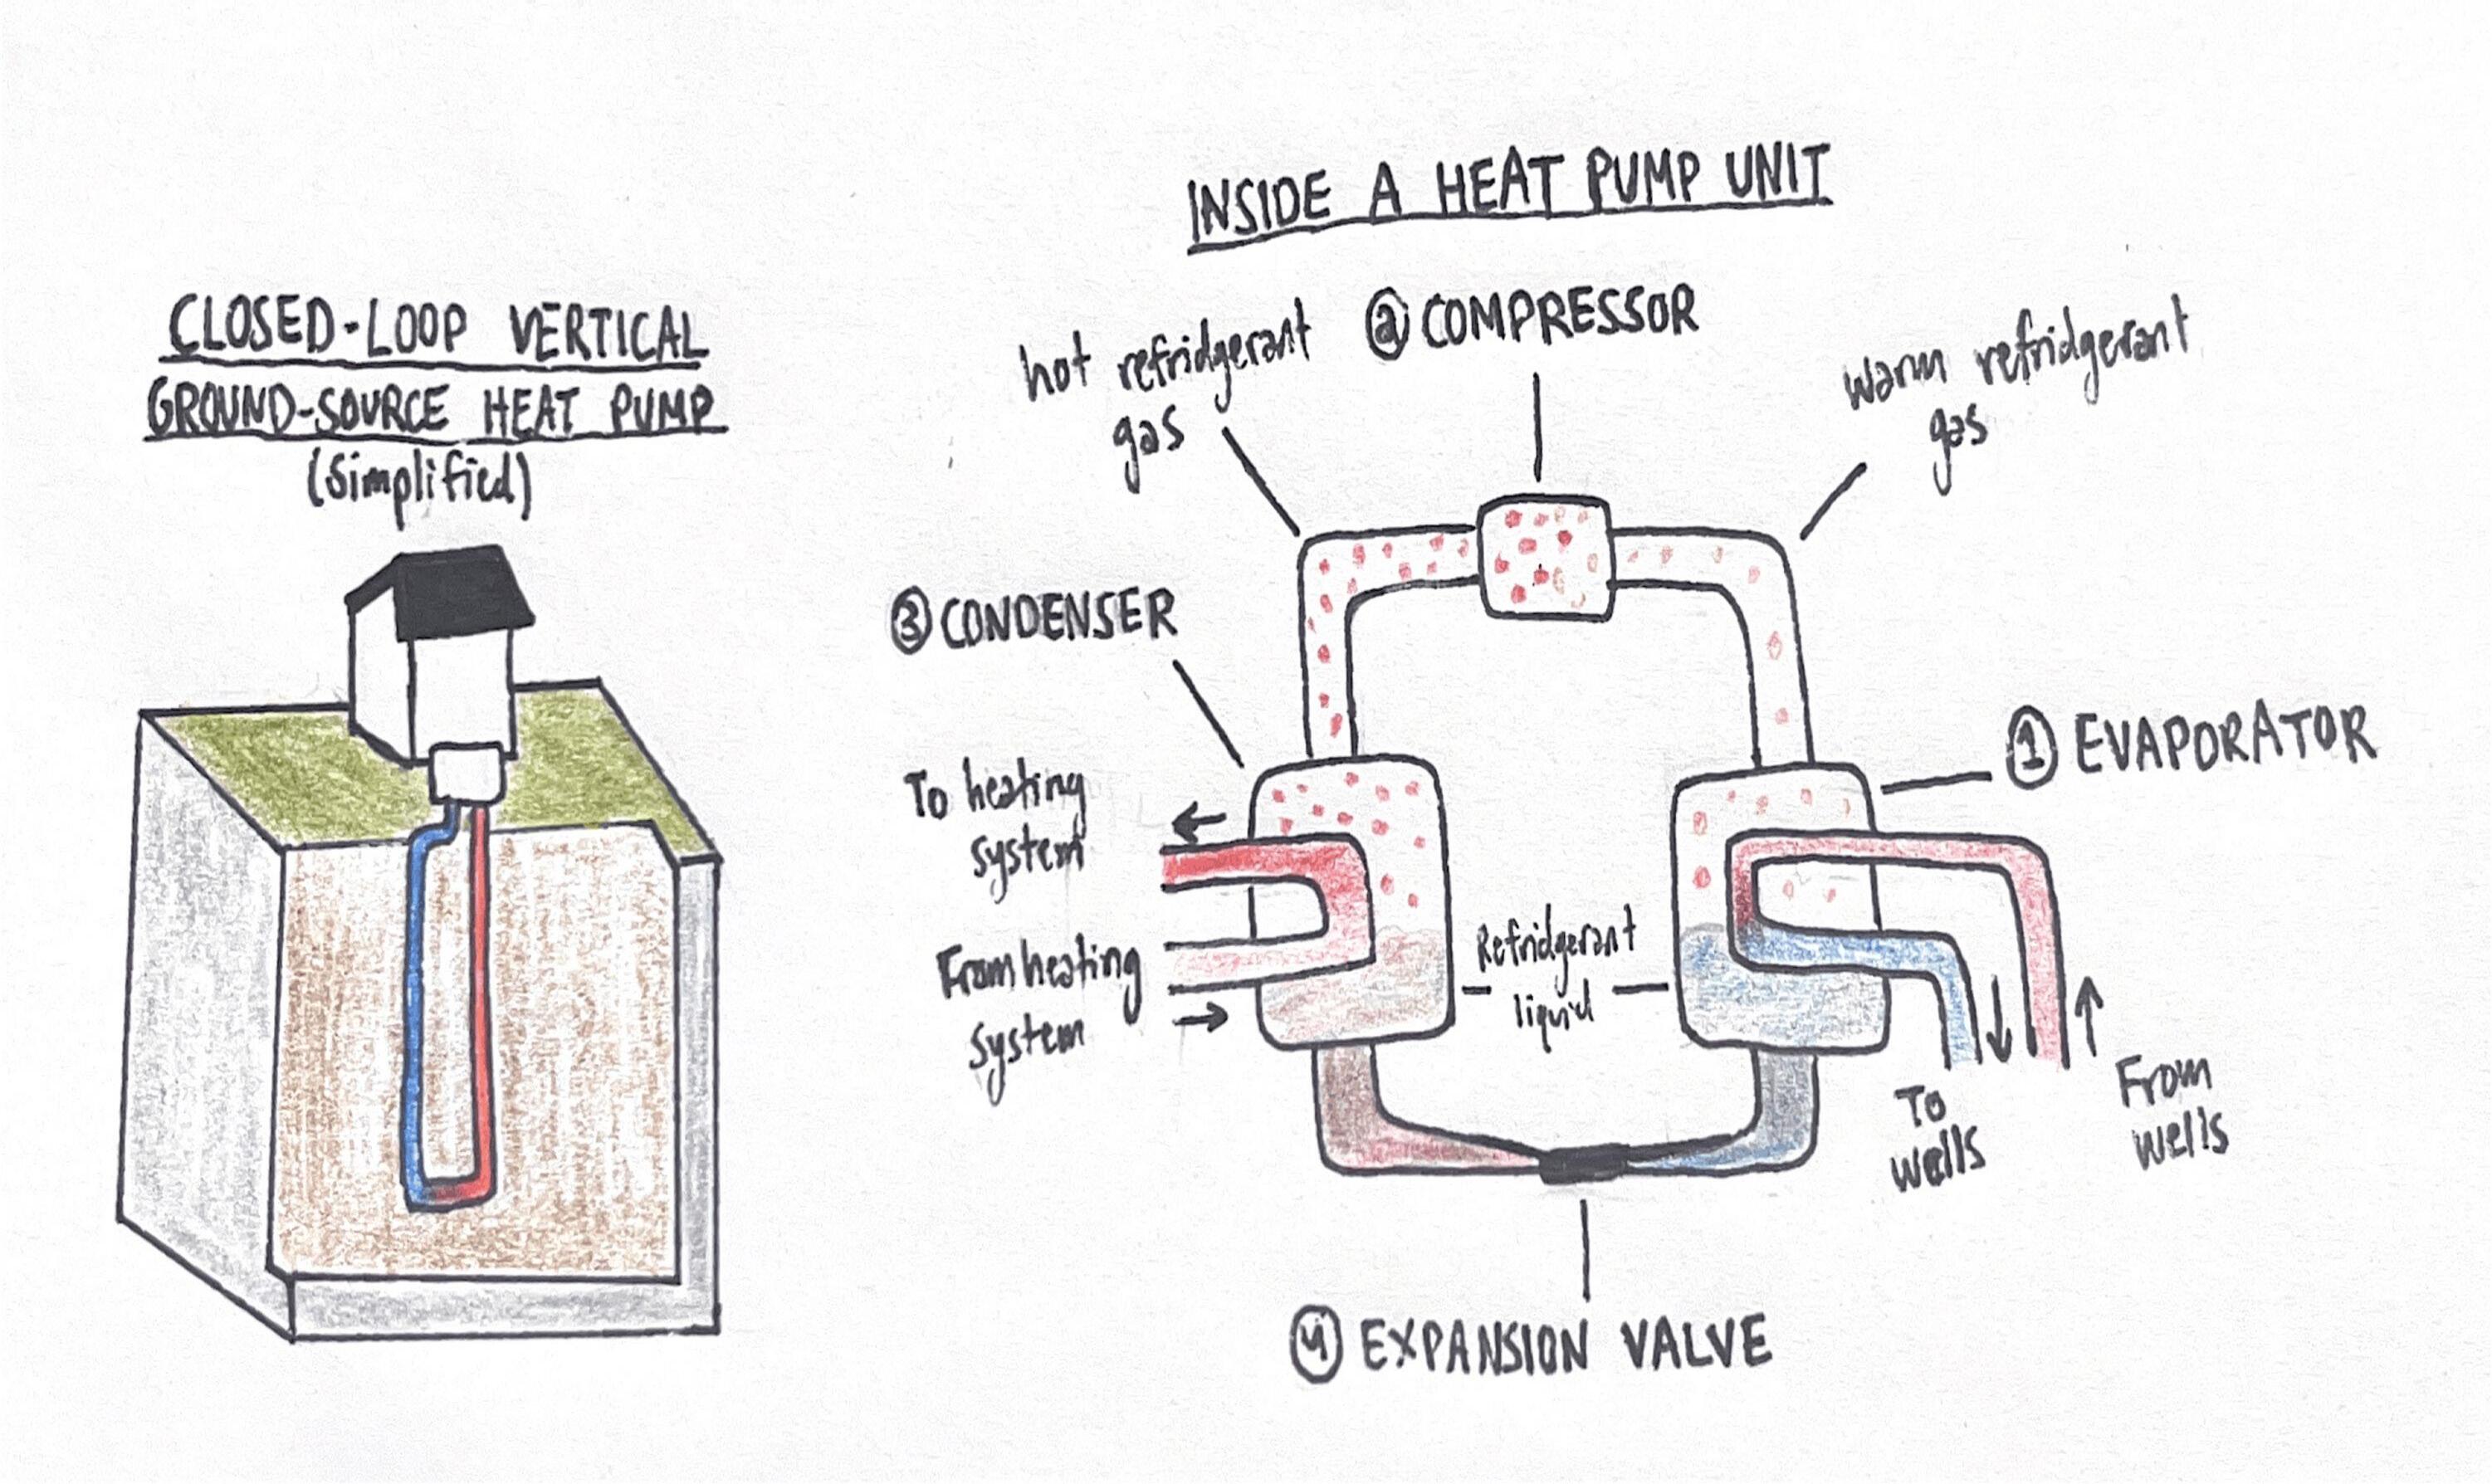 CLOSED-LOOP VERTICAL
GROUND-SOURCE HEAT PUMP
(Simplified)
INSIDE A HEAT PUMP UNIT
hot refridgerant
gas
② COMPRESSOR
warm refridgerant
gas
③ CONDENSER
① EVAPORATOR
To heating
system
From heating
system
Refridgerant
liquid
To
wells
From
wells
④ EXPANSION VALVE